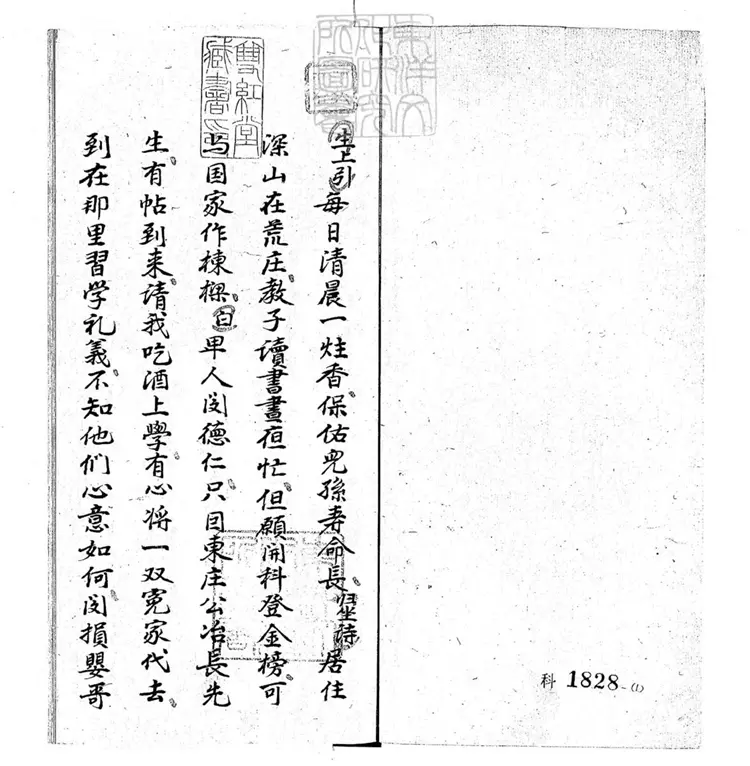 生上引每日清晨一炷香保佑児孫寿命長坐詩居住
深山在荒庄教子讀書晝夜忙但願開科登金榜可
与国家作棟樑白卑人闵德仁只因東庄公冶長先
生有帖到来請我吃酒上學有心将一双冤家代去
到在那里習学礼義不知他们心意如何闵損嬰哥
雙紅堂
藏書印
東洋文
化研究
所圖書
科 1828-(1)